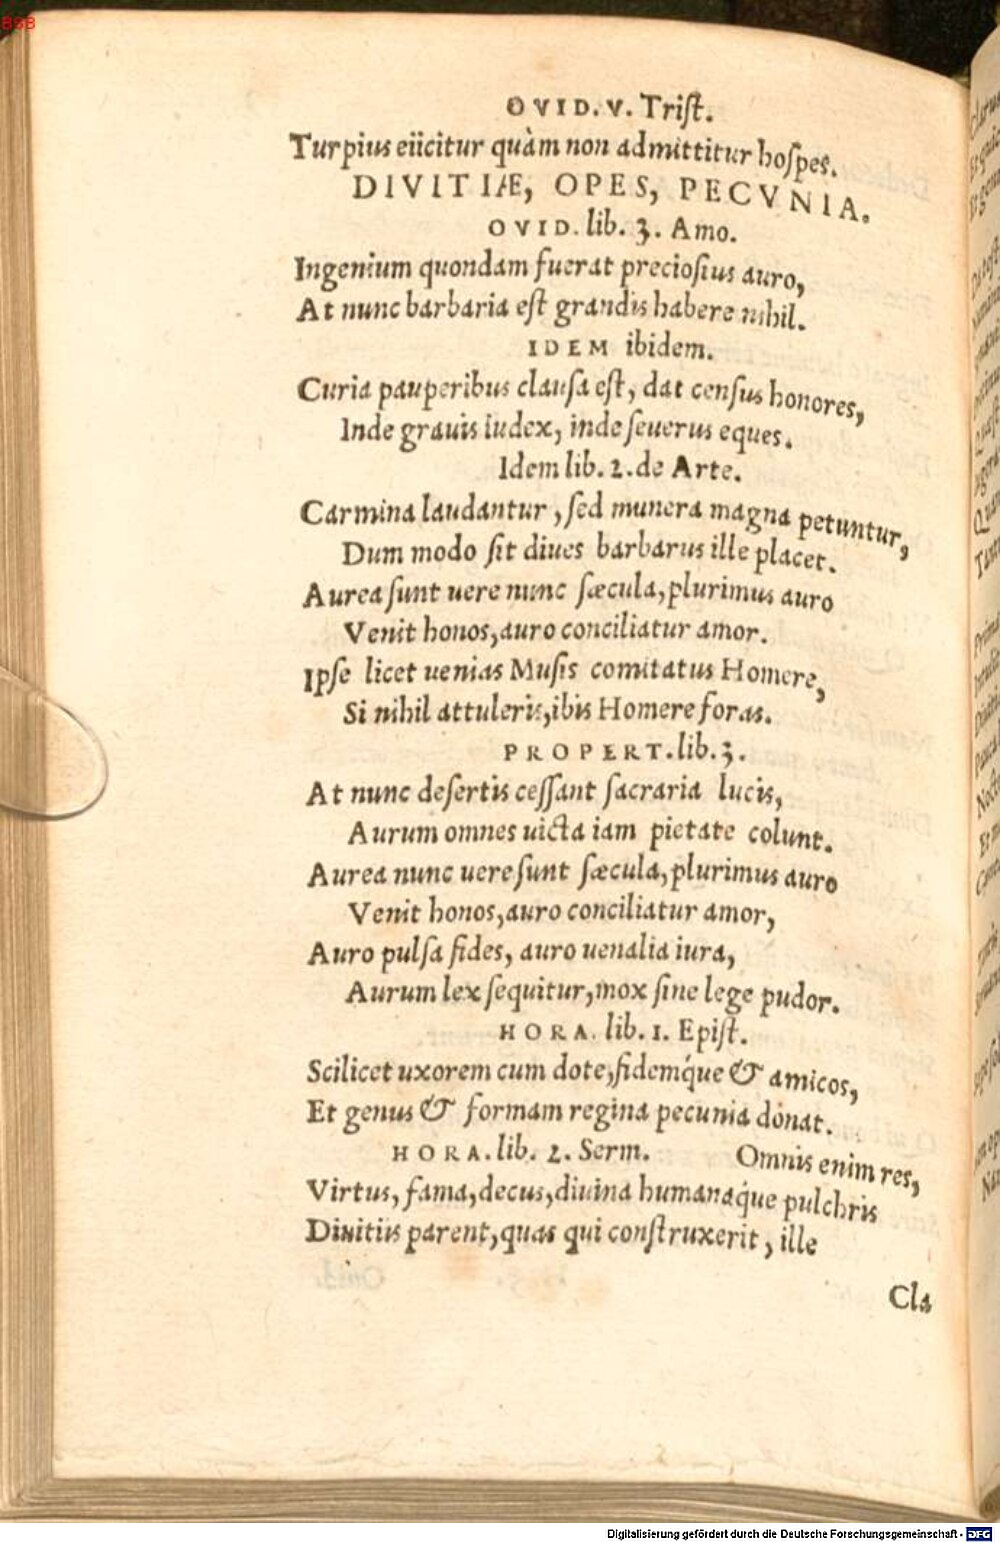 OVID. V. Triſt.
Turpius eiicitur quàm non admittitur hoſpes.
DIVITIÆ, OPES, PECVNIA.
OVID. lib. 3. Amo.
Ingenium quondam fuerat precioſius auro,
At nunc barbaria eſt grandis habere nihil.
IDEM ibidem.
Curia pauperibus clauſa eſt, dat cenſus honores,
Inde grauis iudex, inde ſeuerus eques.
Idem lib. 2. de Arte.
Carmina laudantur, ſed munera magna petuntur,
Dum modo ſit diues barbarus ille placet.
Aurea ſunt uere nunc ſæcula, plurimus auro
Venit honos, auro conciliatur amor.
Ipſe licet uenias Muſis comitatus Homere,
Si nihil attuleris, ibis Homere foras.
PROPERT. lib. 3.
At nunc deſertis ceſſant ſacraria lucis,
Aurum omnes uicta iam pietate colunt.
Aurea nunc uere ſunt ſæcula, plurimus auro
Venit honos, auro conciliatur amor,
Auro pulſa fides, auro uenalia iura,
Aurum lex ſequitur, mox ſine lege pudor.
HORA. lib. 1. Epiſt.
Scilicet uxorem cum dote, fidemq́ue & amicos,
Et genus & formam regina pecunia donat.
HORA. lib. 2. Serm. Omnis enim res,
Virtus, fama, decus, diuina humanaq́ue pulchris
Diuitiis parent, quas qui conſtruxerit, ille
Cla
BSB
Digitalisierung gefördert durch die Deutsche Forschungsgemeinschaft - DFG